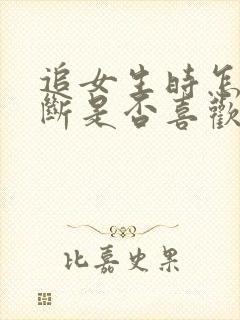 追女生時怎
斷是否喜歡
比嘉史果